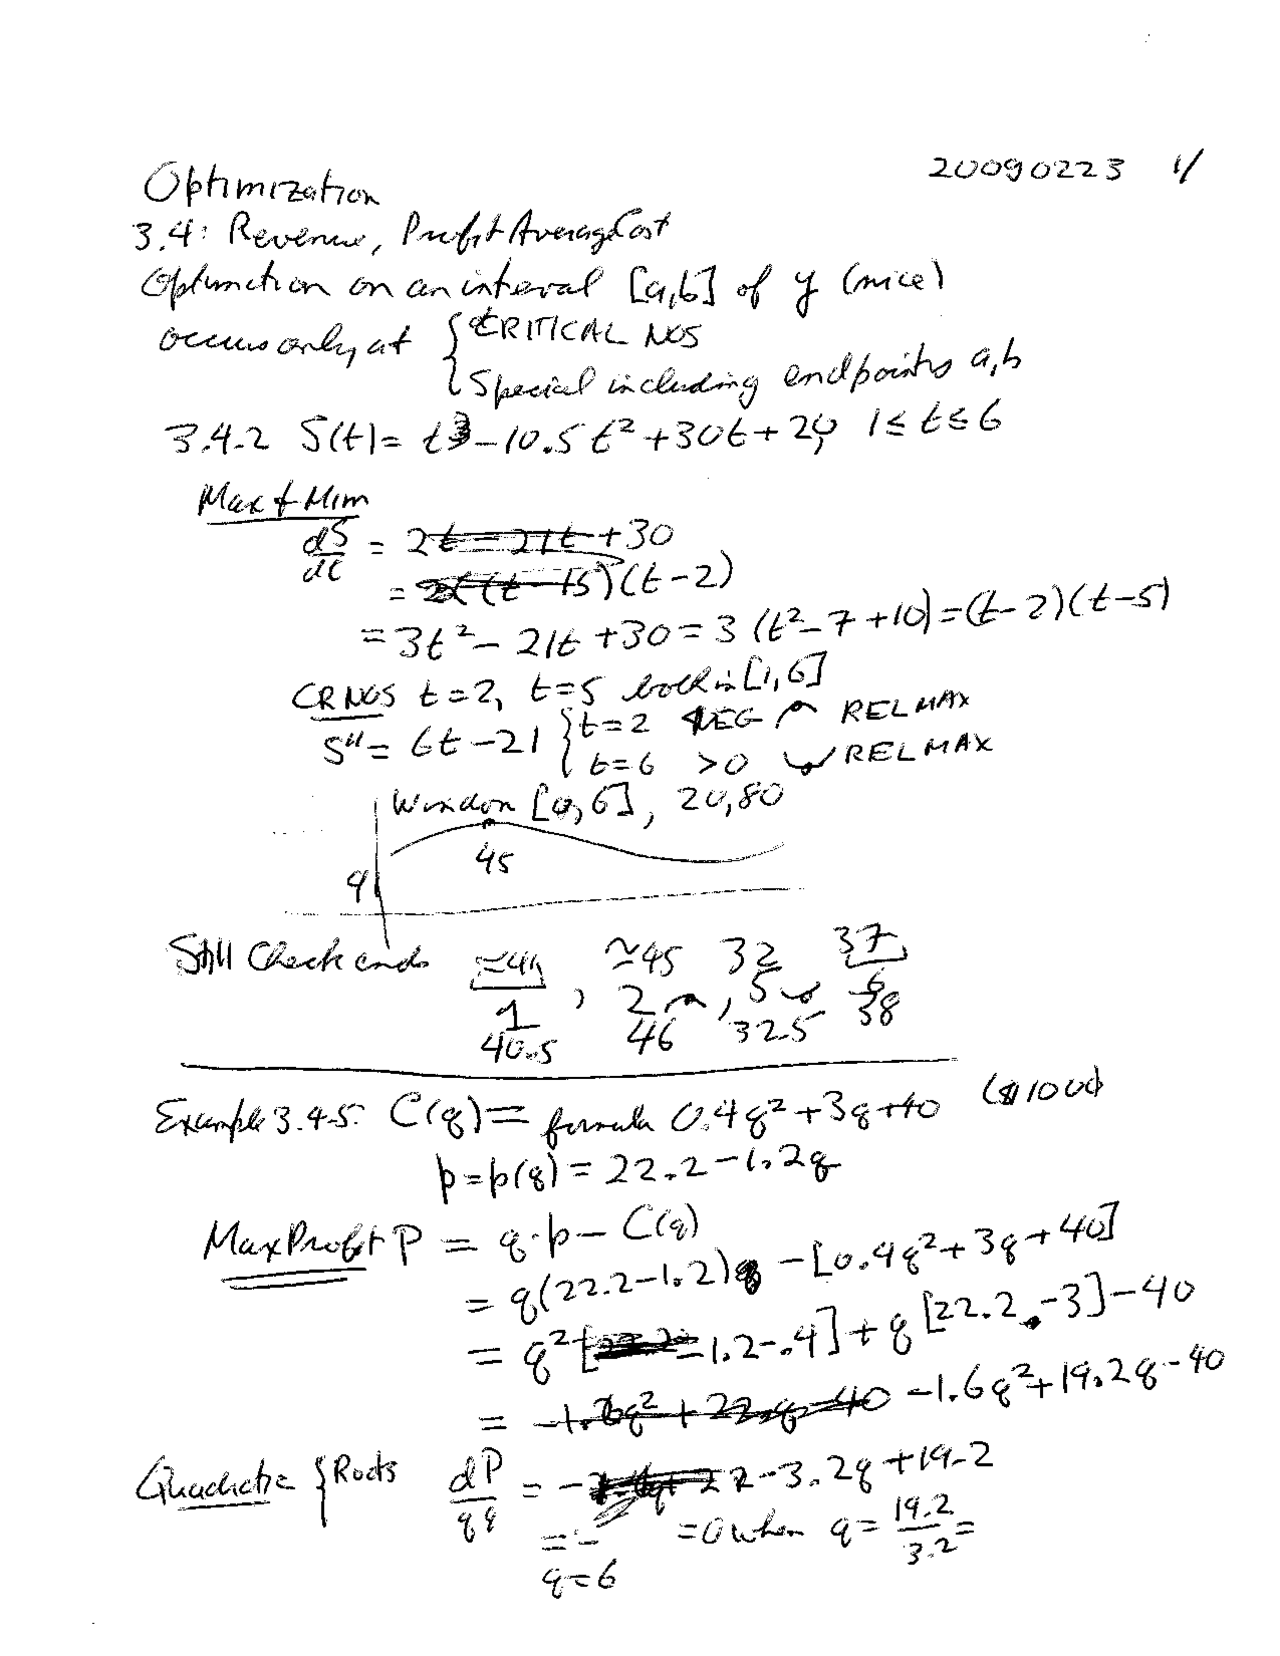 20090223 1/
Optimization
3.4: Revenue, Profit Average Cost
Optimization on an interval [a,b] of y (nice)
occurs only at { CRITICAL NOS
{ Special including endpoints a,b
3.4.2 S(t) = t³ - 10.5t² + 30t + 20, 1 ≤ t ≤ 6
Max & Mim
dS/dt = 2t - 21t + 30
= 2(t - 15)(t - 2)
= 3t² - 21t + 30 = 3(t² - 7 + 10) = (t - 2)(t - 5)
CR NOS t = 2, t = 5 both in [1,6]
S'' = 6t - 21 { t = 2 NEG REL MAX
{ t = 6 > 0 REL MAX
Window [0,6], 20,80
45
9
Still Check ends ≃41 ≃45 32 37
1 , 2 , 5 6
40.5 46 32.5 38
Example 3.4.5: C(q) = formula 0.4q² + 3q + 40 ($1000)
p = p(q) = 22.2 - 1.2q
Max Profit P = q·p - C(q)
= q(22.2 - 1.2)q - [0.4q² + 3q + 40]
= q² [-1.2 - .4] + q [22.2 - 3] - 40
= -1.6q² + 22.q - 40 -1.6q² + 19.2q - 40
Quadratic { Roots dP/qq = - 22 - 3.2q + 19.2
= - = 0 when q = 19.2/3.2 =
q = 6